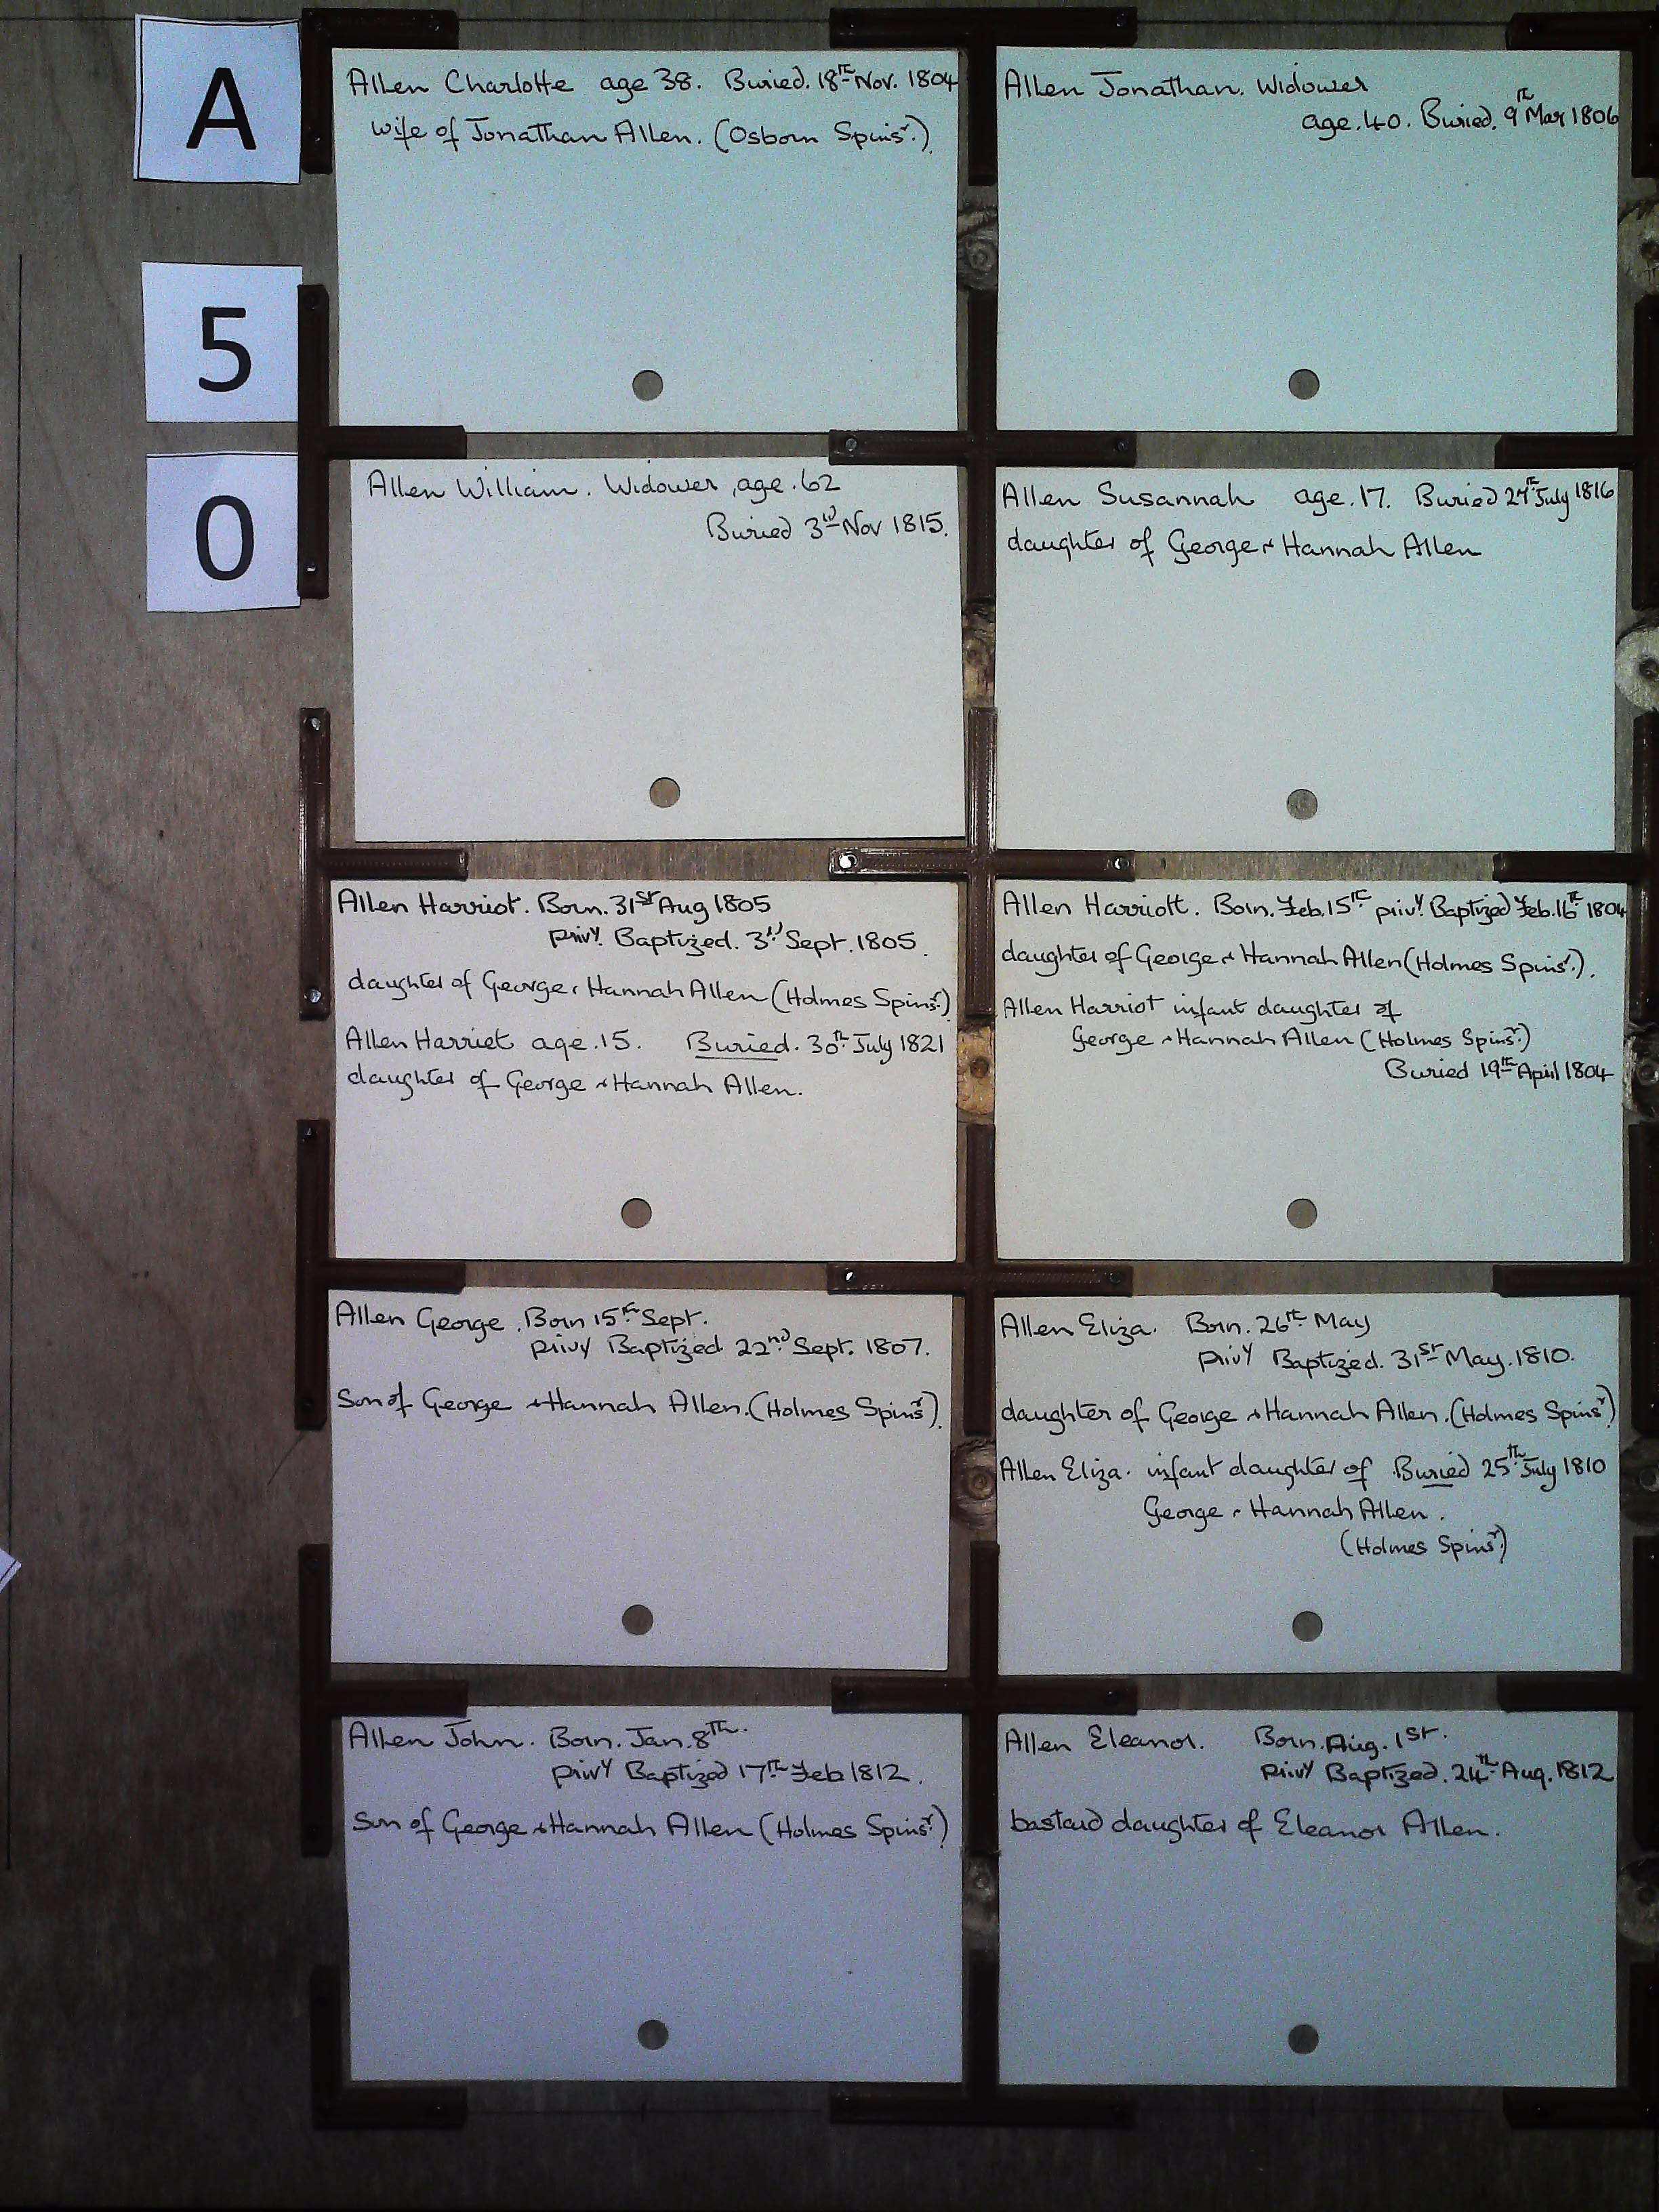 A
5
0
Allen Charlotte age 38. Buried. 18th Nov. 1804
wife of Jonathan Allen. (Osborn Spinsr.)
Allen Jonathan. Widower
age. 40. Buried. 9th Mar 1806
Allen William. Widower, age. 62
Buried 3rd Nov 1815.
Allen Susannah age. 17. Buried 27th July 1816
daughter of George & Hannah Allen
Allen Harriot. Born. 31st Aug 1805
privy. Baptized. 3rd Sept. 1805.
daughter of George & Hannah Allen (Holmes Spinsr.)
Allen Harriet age. 15. Buried. 30th July 1821
daughter of George & Hannah Allen.
Allen Harriott. Born. Feb. 15th privy. Baptized Feb. 16th 1804
daughter of George & Hannah Allen (Holmes Spinsr.).
Allen Harriot infant daughter of
George & Hannah Allen (Holmes Spinsr.)
Buried 19th April 1804
Allen George. Born 15th Sept.
privy Baptized 22nd Sept. 1807.
Son of George & Hannah Allen. (Holmes Spinsr.)
Allen Eliza. Born. 26th May
privy Baptized. 31st May. 1810.
daughter of George & Hannah Allen. (Holmes Spinsr)
Allen Eliza. infant daughter of Buried 25th July 1810
George & Hannah Allen.
(Holmes Spinsr.)
Allen John. Born. Jan. 8th.
privy Baptized 17th Feb 1812.
Son of George & Hannah Allen (Holmes Spinsr.)
Allen Eleanor. Born. Aug. 1st.
privy Baptized. 24th Aug. 1812
bastard daughter of Eleanor Allen.